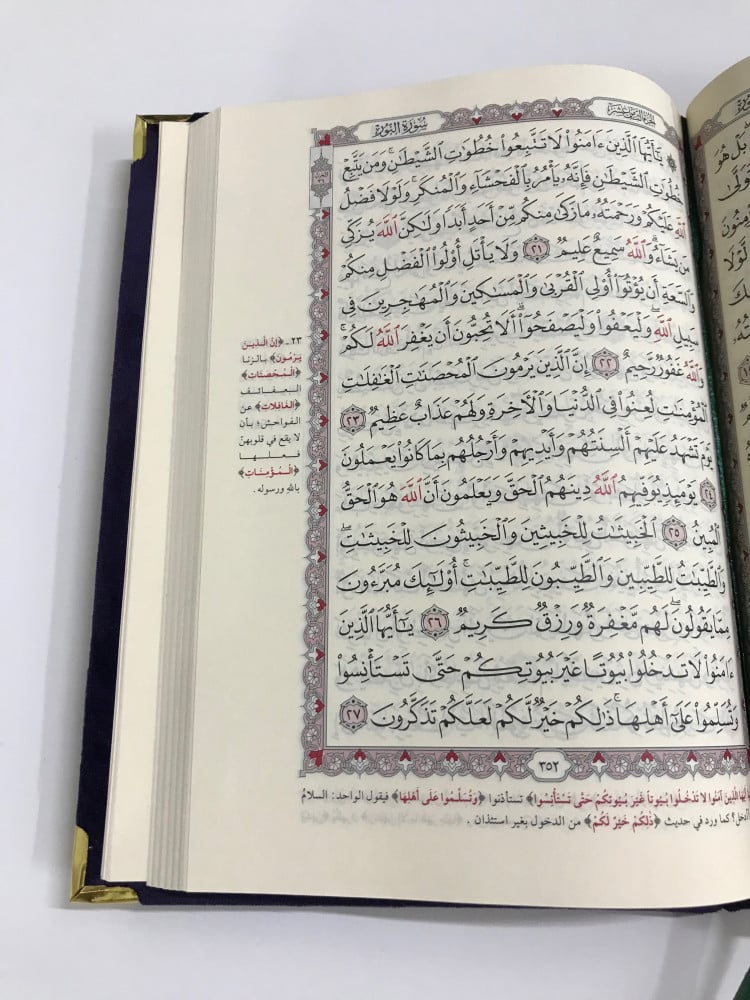 الجزء الثامن عشر
سورة النور
۞ يَٰٓأَيُّهَا ٱلَّذِينَ ءَامَنُوا۟ لَا تَتَّبِعُوا۟ خُطُوَٰتِ ٱلشَّيْطَٰنِ ۚ وَمَن يَتَّبِعْ
خُطُوَٰتِ ٱلشَّيْطَٰنِ فَإِنَّهُۥ يَأْمُرُ بِٱلْفَحْشَآءِ وَٱلْمُنكَرِ ۚ وَلَوْلَا فَضْلُ
ٱللَّهِ عَلَيْكُمْ وَرَحْمَتُهُۥ مَا زَكَىٰ مِنكُم مِّنْ أَحَدٍ أَبَدًا وَلَٰكِنَّ ٱللَّهَ يُزَكِّى
مَن يَشَآءُ ۗ وَٱللَّهُ سَمِيعٌ عَلِيمٌ ٢١ وَلَا يَأْتَلِ أُو۟لُوا۟ ٱلْفَضْلِ مِنكُمْ
وَٱلسَّعَةِ أَن يُؤْتُوٓا۟ أُو۟لِى ٱلْقُرْبَىٰ وَٱلْمَسَٰكِينَ وَٱلْمُهَٰجِرِينَ فِى
سَبِيلِ ٱللَّهِ ۖ وَلْيَعْفُوا۟ وَلْيَصْفَحُوٓا۟ ۗ أَلَا تُحِبُّونَ أَن يَغْفِرَ ٱللَّهُ لَكُمْ ۗ
وَٱللَّهُ غَفُورٌ رَّحِيمٌ ٢٢ إِنَّ ٱلَّذِينَ يَرْمُونَ ٱلْمُحْصَنَٰتِ ٱلْغَٰفِلَٰتِ
ٱلْمُؤْمِنَٰتِ لُعِنُوا۟ فِى ٱلدُّنْيَا وَٱلْءَاخِرَةِ وَلَهُمْ عَذَابٌ عَظِيمٌ ٢٣
يَوْمَ تَشْهَدُ عَلَيْهِمْ أَلْسِنَتُهُمْ وَأَيْدِيهِمْ وَأَرْجُلُهُم بِمَا كَانُوا۟ يَعْمَلُونَ
٢٤ يَوْمَئِذٍ يُوَفِّيهِمُ ٱللَّهُ دِينَهُمُ ٱلْحَقَّ وَيَعْلَمُونَ أَنَّ ٱللَّهَ هُوَ ٱلْحَقُّ
ٱلْمُبِينُ ٢٥ ٱلْخَبِيثَٰتُ لِلْخَبِيثِينَ وَٱلْخَبِيثُونَ لِلْخَبِيثَٰتِ ۖ
وَٱلطَّيِّبَٰتُ لِلطَّيِّبِينَ وَٱلطَّيِّبُونَ لِلطَّيِّبَٰتِ ۚ أُو۟لَٰٓئِكَ مُبَرَّءُونَ
مِمَّا يَقُولُونَ ۖ لَهُم مَّغْفِرَةٌ وَرِزْقٌ كَرِيمٌ ٢٦ يَٰٓأَيُّهَا ٱلَّذِينَ
ءَامَنُوا۟ لَا تَدْخُلُوا۟ بُيُوتًا غَيْرَ بُيُوتِكُمْ حَتَّىٰ تَسْتَأْنِسُوا۟
وَتُسَلِّمُوا۟ عَلَىٰٓ أَهْلِهَا ۚ ذَٰلِكُمْ خَيْرٌ لَّكُمْ لَعَلَّكُمْ تَذَكَّرُونَ ٢٧
٣٥٢
٢٣ـ ﴿إِنَّ الَّذِينَ
يَرْمُونَ﴾ بالزنا
﴿الْمُحْصَنَاتِ﴾
العفائف
﴿الغَافِلاتِ﴾ عن
الفواحش؛ بأن
لا يقع في قلوبهنّ
فعلها
﴿الْمُؤْمِنَاتِ﴾
بالله ورسوله .
أيها الَّذِينَ آمَنُوا لا تَدْخُلُوا بُيُوتاً غَيْرَ بُيُوتِكُمْ حَتَّى تَسْتَأْنِسُوا﴾ تستأذنوا ﴿وَتُسَلِّمُوا عَلَى أَهْلِهَا﴾ فيقول الواحد: السلامُ
كما ورد في حديث ﴿ذَلِكُمْ خَيْرٌ لَكُمْ﴾ من الدخول بغير استئذان .